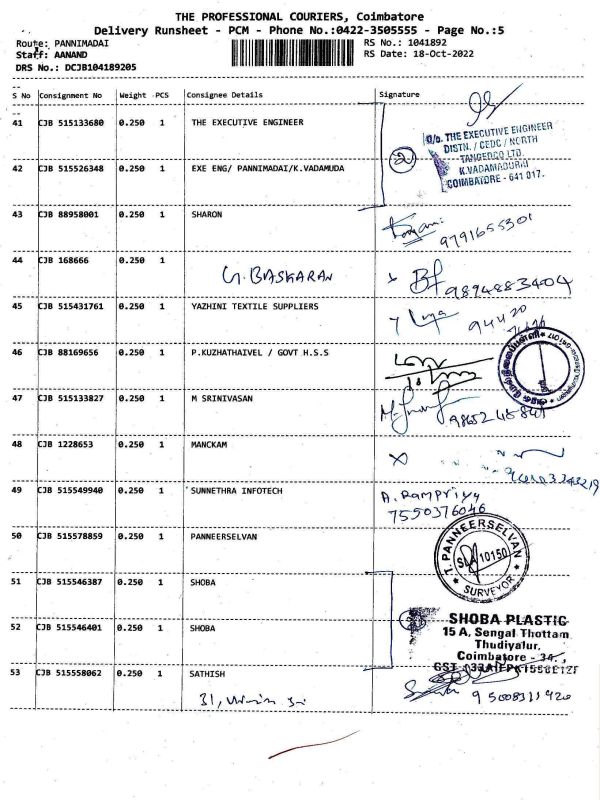 THE PROFESSIONAL COURIERS, Coimbatore
Delivery Runsheet - PCM - Phone No.:0422-3505555 - Page No.:5
Route: PANNIMADAI RS No.: 1041892
Staff: AANAND RS Date: 18-Oct-2022
DRS No.: DCJB104189205
S No Consignment No Weight PCS Consignee Details Signature
41 CJB 515133680 0.250 1 THE EXECUTIVE ENGINEER
O/o. THE EXECUTIVE ENGINEER
DISTN. / CEDC / NORTH
TANGEDCO LTD.
K.VADAMADURAI
COIMBATORE - 641 017.
2
42 CJB 515526348 0.250 1 EXE ENG/ PANNIMADAI/K.VADAMUDA
43 CJB 88958001 0.250 1 SHARON
9791655301
44 CJB 168666 0.250 1
G. BASKARAN 9894883404
45 CJB 515431761 0.250 1 YAZHINI TEXTILE SUPPLIERS
94420
46 CJB 88169656 0.250 1 P.KUZHATHAIVEL / GOVT H.S.S
47 CJB 515133827 0.250 1 M SRINIVASAN
48 CJB 1228653 0.250 1 MANCKAM
49 CJB 515549940 0.250 1 SUNNETHRA INFOTECH A. Rampriya
7550376046
50 CJB 515578859 0.250 1 PANNEERSELVAN
T. PANNEERSELVAN
SLA 10150
SURVEYOR
51 CJB 515546387 0.250 1 SHOBA
52 CJB 515546401 0.250 1 SHOBA
SHOBA PLASTIC
15 A, Sengal Thottam
Thudiyalur,
Coimbatore - 34.,
53 CJB 515558062 0.250 1 SATHISH
95008311420